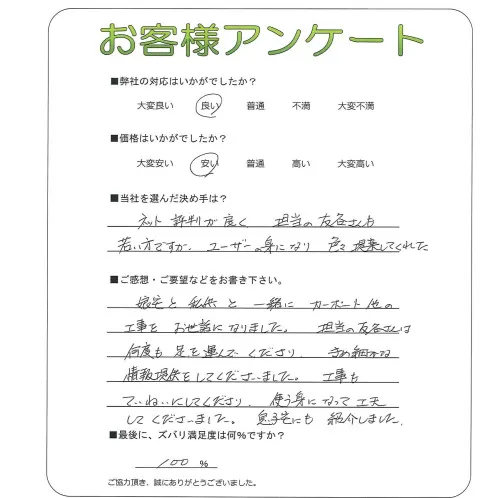 お客様アンケート
■弊社の対応はいかがでしたか？
大変良い 良い 普通 不満 大変不満
■価格はいかがでしたか？
大変安い 安い 普通 高い 大変高い
■当社を選んだ決め手は？
ネット評判が良く 担当の友谷さんも
若い方ですが、ユーザーの身になり 色々提案してくれた
■ご感想・ご要望などをお書き下さい。
と 私供と一緒に カーポート他の
工事を お世話になりました。 担当の友谷さんは
何度も足を運んで くださり、 きめ細かな
情報提供をしてくださいました。 工事も
ていねいにしてくださり、 使う身になって工夫
してくださいました。 息子宅にも 紹介しました。
■最後に、ズバリ満足度は何%ですか？
100 %
ご協力頂き、誠にありがとうございました。